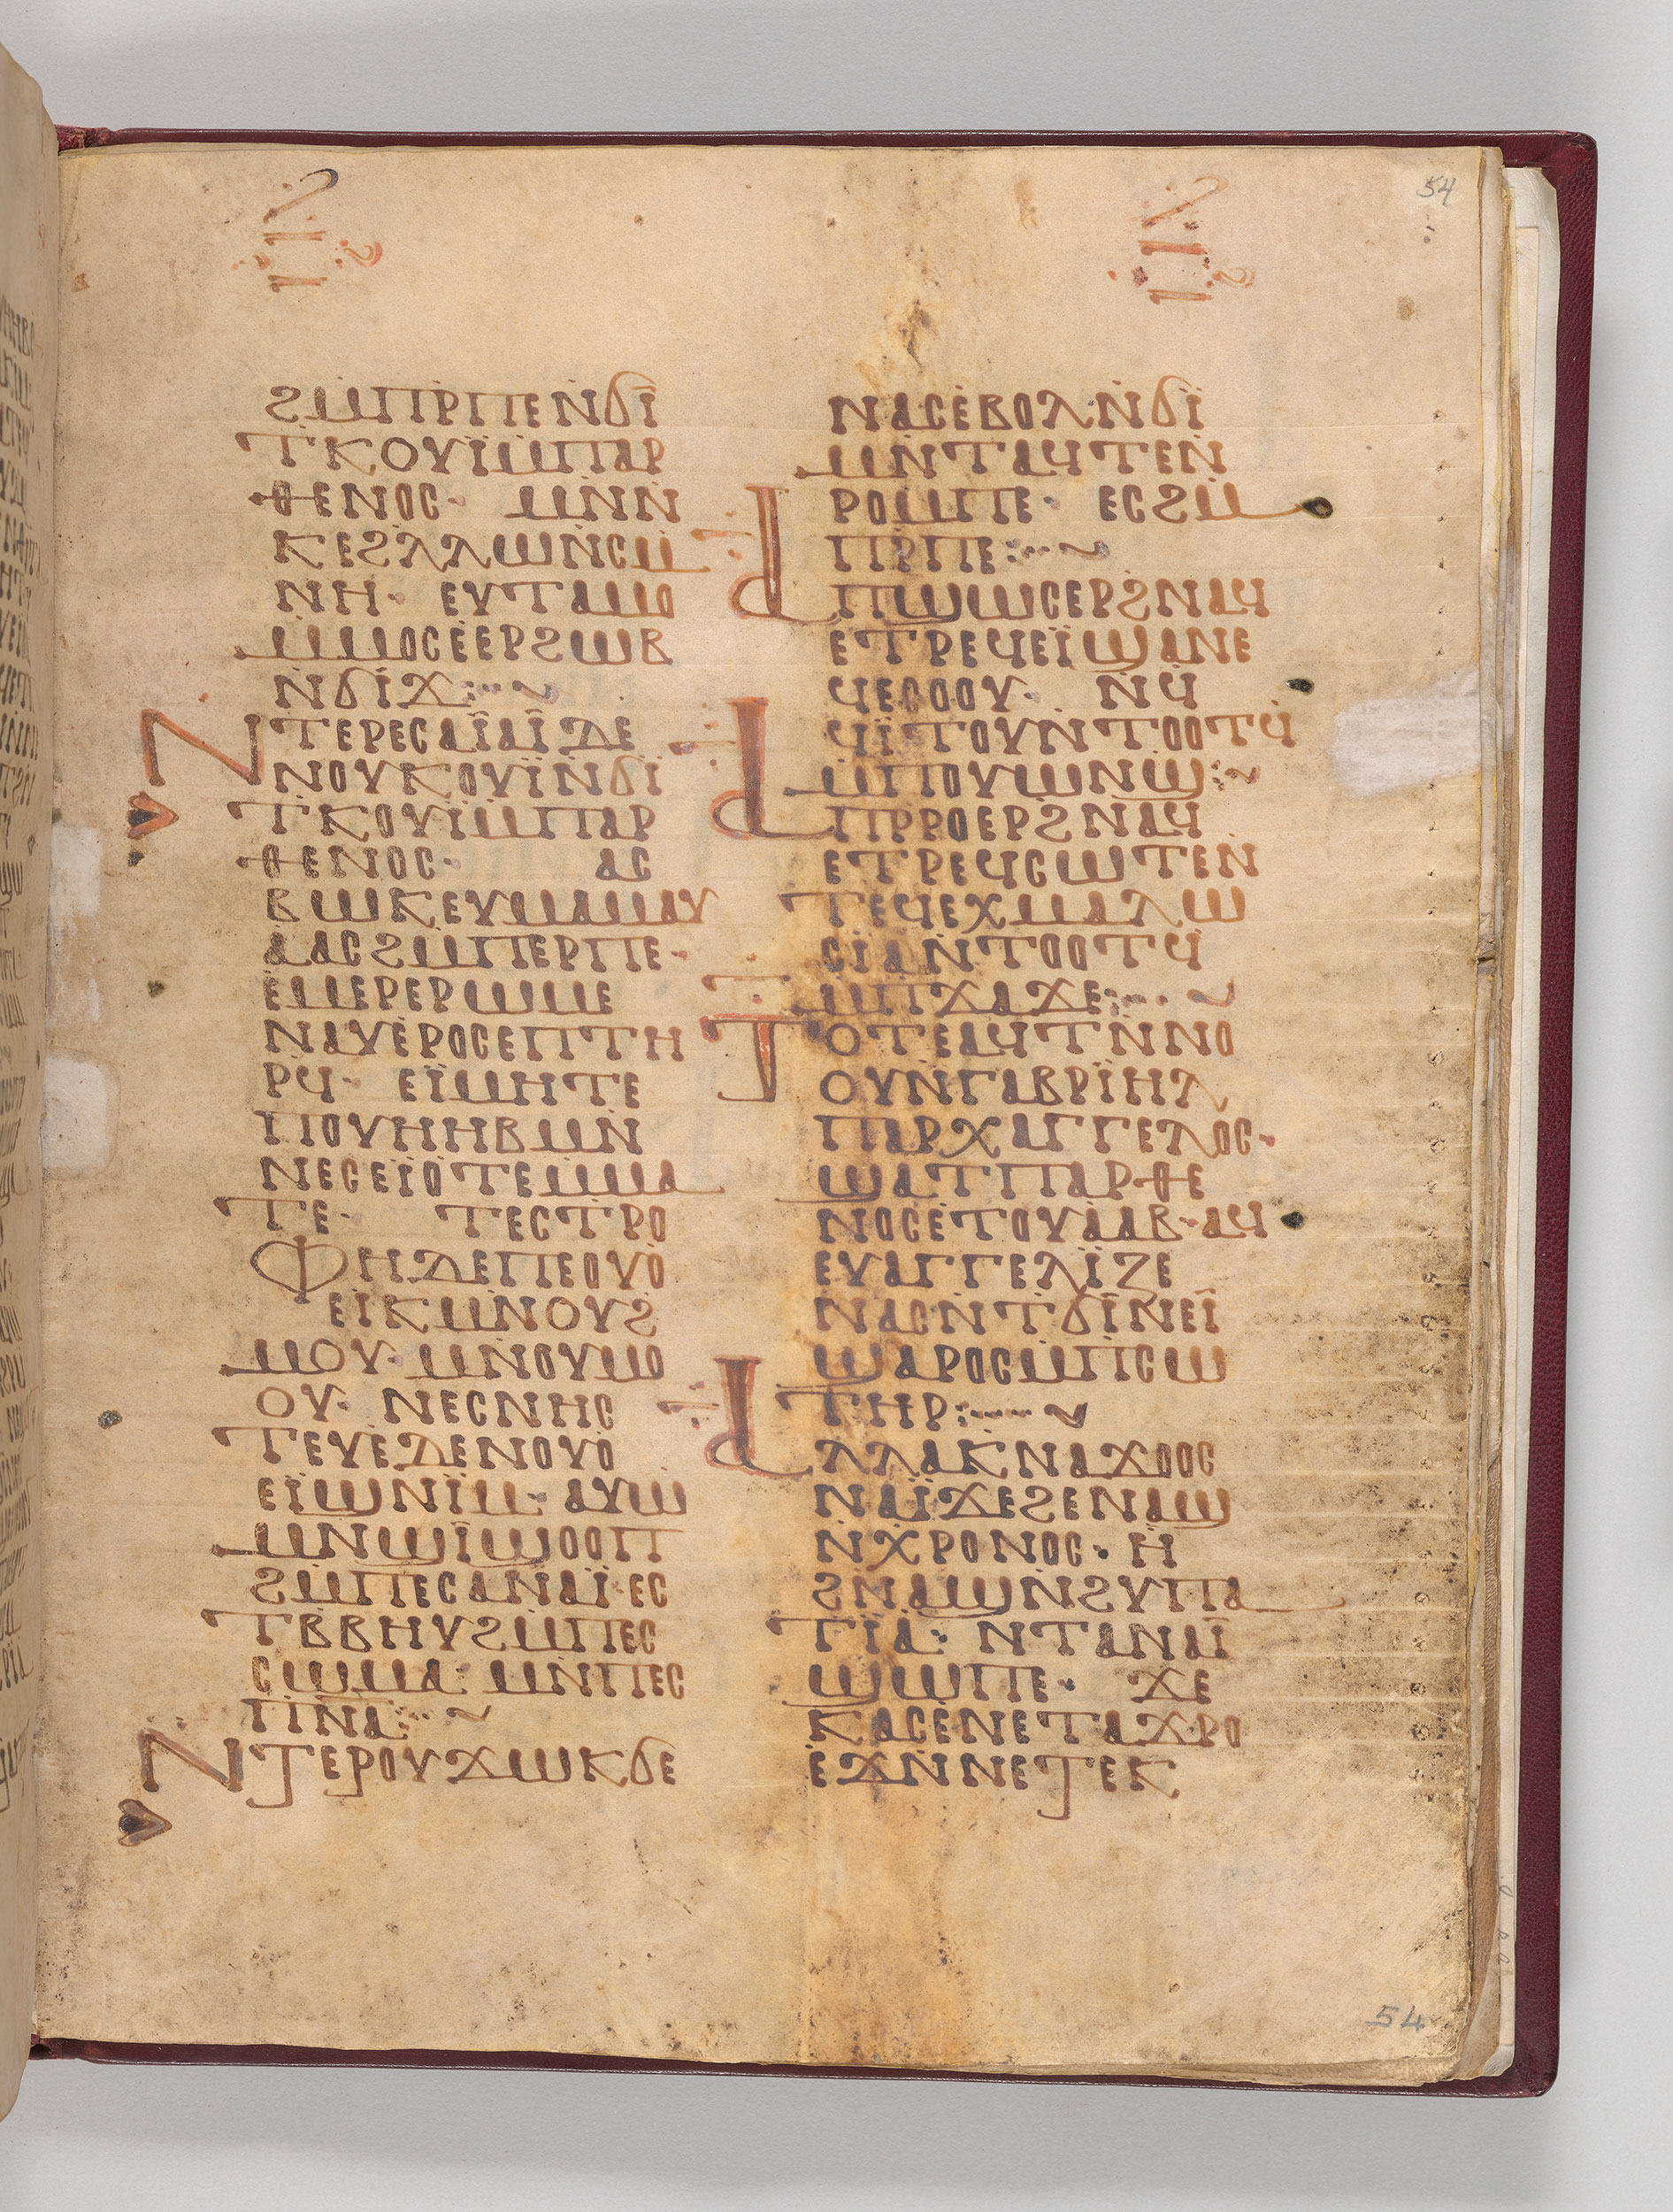 54
ϨⲘⲠⲢⲠⲈⲚϬⲒ
ⲦⲔⲞⲨⲒⲘⲠⲀⲢ
ⲐⲈⲚⲞⲤ· ⲘⲚⲚ
ⲔⲈϨⲀⲀⲰⲚⲤⲘ
ⲚⲎ· ⲈⲨⲦⲀⲘⲞ
ⲘⲘⲞⲤⲈⲈⲢϨⲰⲂ
ⲚϬⲒϪ
ⲚⲦⲈⲢⲈⲤⲀⲒⲀⲒ ⲆⲈ
ⲚⲞⲨⲔⲞⲨⲒⲚϬⲒ
ⲦⲔⲞⲨⲒⲘⲠⲀⲢ
ⲐⲈⲚⲞⲤ· ⲀⲤ
ⲂⲰⲔⲈⲨⲘⲀⲘⲀⲨ
ⲀⲀⲤϨⲘⲠⲈⲢⲠⲈ·
ⲈⲘⲈⲢⲈⲢⲰⲘⲈ
ⲚⲀⲨⲈⲢⲞⲤⲈⲠⲦⲎ
ⲢϤ· ⲈⲒⲘⲎⲦⲈ
ⲠⲞⲨⲎⲎⲂ ⲘⲚ
ⲚⲈⲤⲈⲒⲞⲦⲈⲘⲘⲀ
ⲦⲈ· ⲦⲈⲤⲦⲢⲞ
ⲪⲎⲆⲈⲠⲈⲞⲨⲞ
ⲈⲒⲔⲘⲚⲞⲨϨ
ⲘⲞⲨ· ⲘⲚⲞⲨⲘⲞ
ⲞⲨ· ⲚⲈⲤⲚⲎⲤ
ⲦⲈⲨⲈⲆⲈⲚⲞⲨⲞ
ⲈⲒϢⲚⲒⲘ· ⲀⲨⲰ
ⲘⲚϢⲒϢⲞⲞⲠ
ϨⲘⲠⲈⲤⲀⲚⲀⲒ·ⲈⲤ
ⲦⲂⲂⲎⲨϨⲘⲠⲈⲤ
ⲤⲰⲘⲀ· ⲘⲚⲠⲈⲤ
ⲠⲚⲀ
ⲚⲦⲈⲢⲞⲨϪⲰⲔϬⲈ
ⲚⲀⲤⲈⲂⲞⲖⲚϬⲒ
ⲘⲚⲦⲀϤⲦⲈⲚ
ⲢⲞⲘⲠⲈ· ⲈⲤϨⲘ
ⲠⲢⲠⲈ
ⲀⲠϢⲰⲤⲈⲢϨⲚⲀϤ
ⲈⲦⲢⲈϤⲈⲒϢⲀⲚⲈ
ϤⲈⲤⲞⲞⲨ· ⲚϤ
ϤⲒⲦⲞⲨⲚⲦⲞⲞⲦϤ
ⲘⲠⲞⲨⲰⲚϢ
ⲀⲠⲢⲢⲞⲈⲢϨⲚⲀϤ
ⲈⲦⲢⲈϤⲤⲰⲦⲈⲚ
ⲦⲈϤⲈⲬⲘⲀⲖⲰ
ⲤⲒⲀⲚⲦⲞⲞⲦϤ
ⲘⲠϪⲀϪⲈ
ⲦⲞⲦⲈⲀϤⲦⲚⲚⲞ
ⲞⲨⲚⲄⲀⲂⲢⲒⲎⲖ
ⲠⲀⲢⲬⲀⲄⲄⲈⲖⲞⲤ·
ϢⲀⲦⲠⲀⲢⲐⲈ
ⲚⲞⲤⲈⲦⲞⲨⲀⲀⲂ·ⲀϤ
ⲈⲨⲀⲄⲄⲈⲖⲒⲌⲈ
ⲚⲀⲤⲚⲦϬⲒⲚⲈⲒ
ϢⲀⲢⲞⲤⲘⲠⲤⲰ
ⲦⲎⲢ
ⲀⲖⲖⲀⲔⲚⲀϪⲞⲞⲤ
ⲚⲀⲒϪⲈϨⲈⲚⲀϢ
ⲚⲬⲢⲞⲚⲞⲤ· Ⲏ
ϨⲚⲀϢⲚϨⲨⲠⲀ
ⲦⲒⲀ· ⲚⲦⲀⲚⲀⲒ
ϢⲰⲠⲈ· ϪⲈ
ⲔⲀⲤⲈⲚⲈⲦⲀϪⲢⲞ
ⲈϪⲚⲚⲈⲦⲈⲔ
54